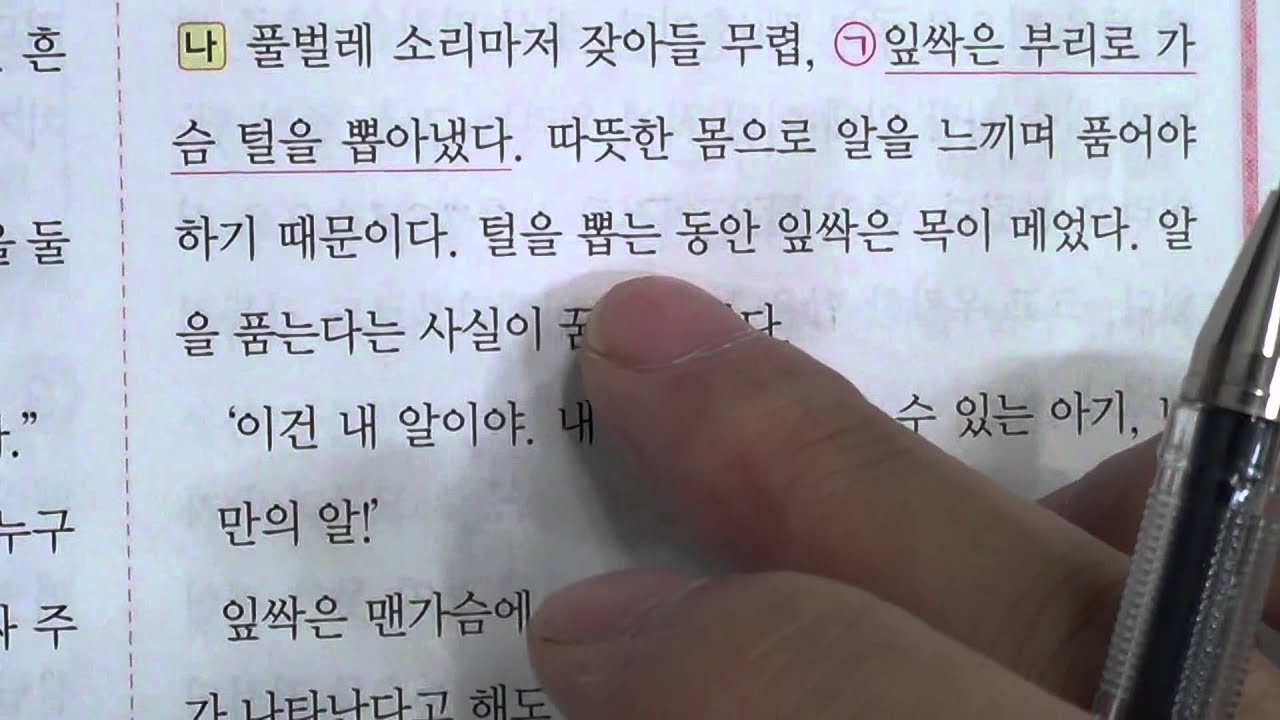 흔
을 둘
."
누구
주
나 풀벌레 소리마저 잦아들 무렵, ㉠잎싹은 부리로 가
슴 털을 뽑아냈다. 따뜻한 몸으로 알을 느끼며 품어야
하기 때문이다. 털을 뽑는 동안 잎싹은 목이 메었다. 알
을 품는다는 사실이
‘이건 내 알이야. 내 수 있는 아기,
만의 알!’
잎싹은 맨가슴에
가 나타난다고 해도